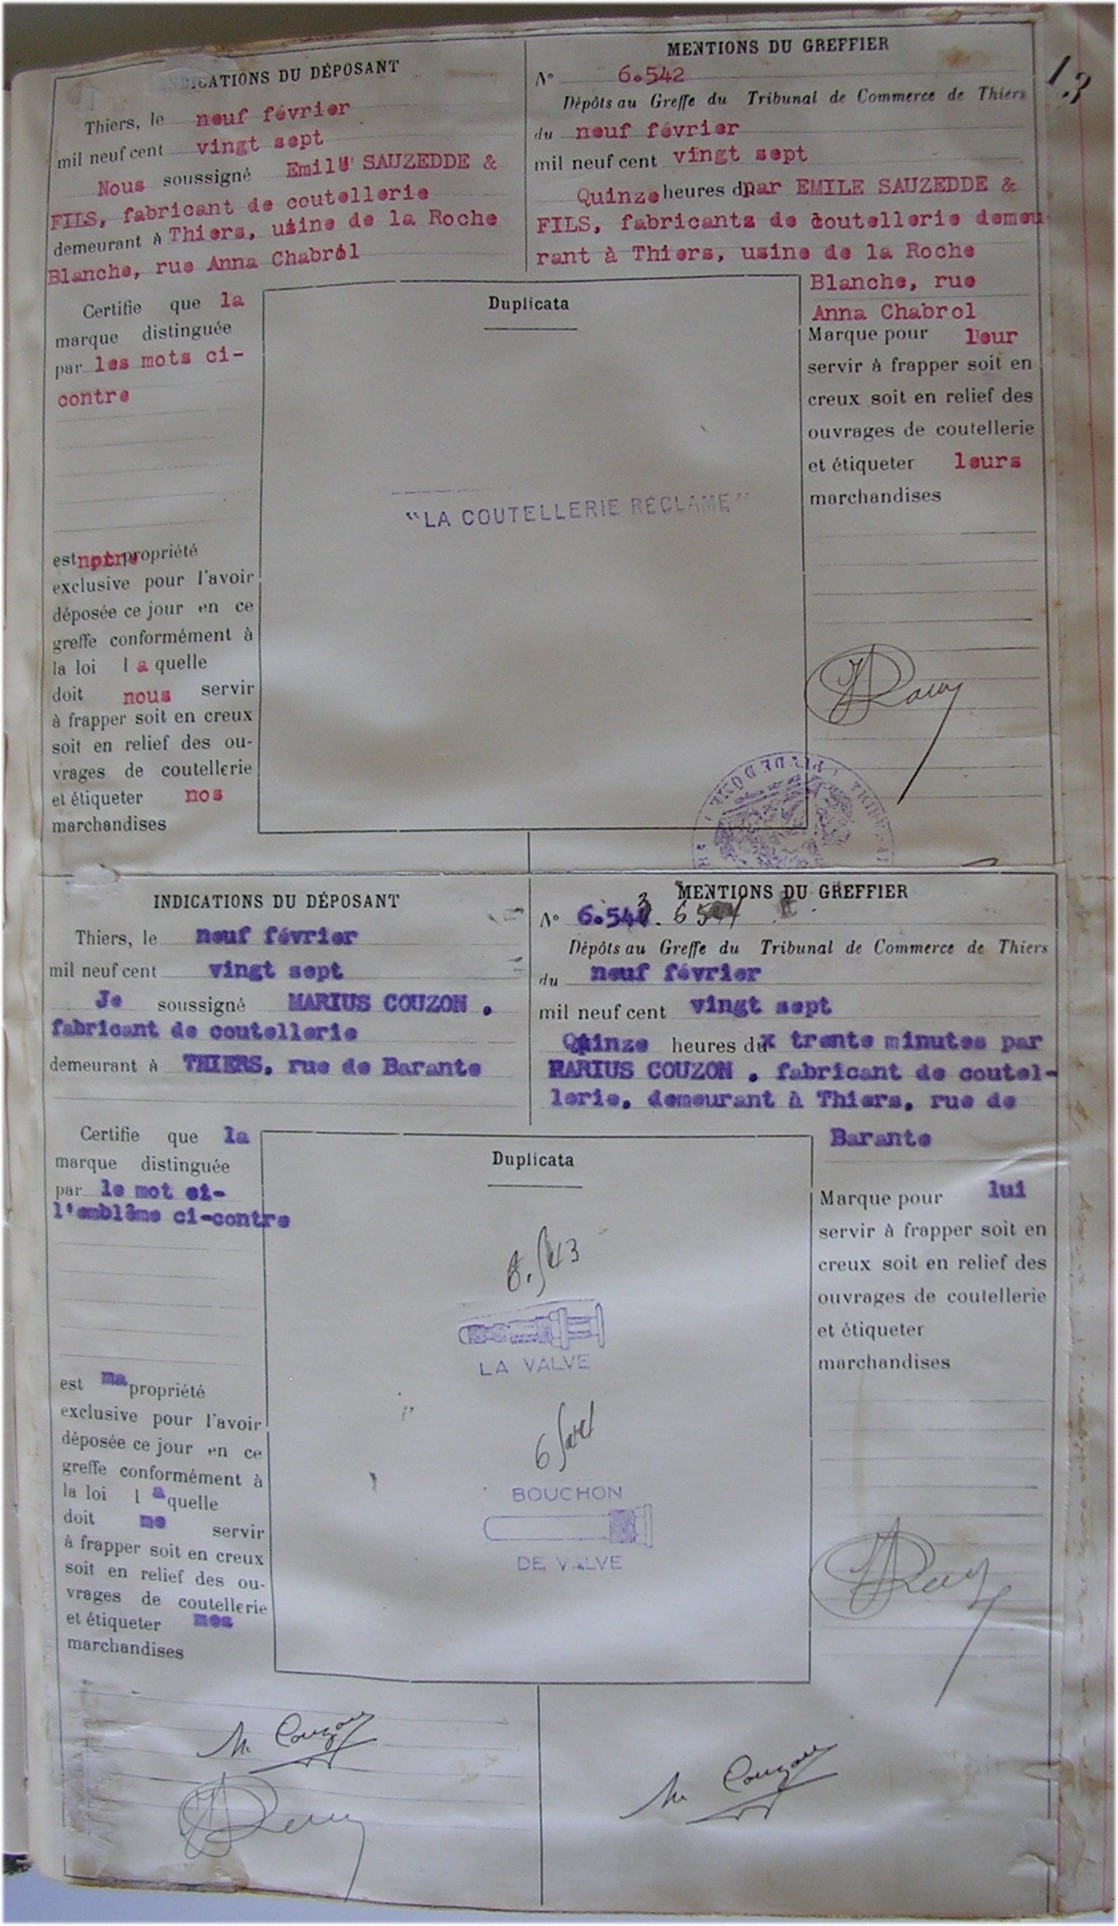 INDICATIONS DU DÉPOSANT
Thiers, le neuf février
mil neuf cent vingt sept
Nous soussigné Emile SAUZEDDE &
FILS, fabricant de coutellerie
demeurant à Thiers, usine de la Roche
Blanche, rue Anna Chabrol
Certifie que la
marque distinguée
par les mots ci-
contre
est notre propriété
exclusive pour l'avoir
déposée ce jour en ce
greffe conformément à
la loi la quelle
doit nous servir
à frapper soit en creux
soit en relief des ou-
vrages de coutellerie
et étiqueter nos
marchandises
Duplicata
"LA COUTELLERIE RÉCLAME"
MENTIONS DU GREFFIER
13
N° 6.542
Dépôts au Greffe du Tribunal de Commerce de Thiers
du neuf février
mil neuf cent vingt sept
Quinze heures par EMILE SAUZEDDE &
FILS, fabricants de coutellerie demeu
rant à Thiers, usine de la Roche
Blanche, rue
Anna Chabrol
Marque pour leur
servir à frapper soit en
creux soit en relief des
ouvrages de coutellerie
et étiqueter leurs
marchandises
INDICATIONS DU DÉPOSANT
Thiers, le neuf février
mil neuf cent vingt sept
Je soussigné MARIUS COUZON,
fabricant de coutellerie
demeurant à THIERS, rue de Barante
Certifie que la
marque distinguée
par le mot et-
l'emblême ci-contre
est ma propriété
exclusive pour l'avoir
déposée ce jour en ce
greffe conformément à
la loi la quelle
doit me servir
à frapper soit en creux
soit en relief des ou-
vrages de coutellerie
et étiqueter mes
marchandises
M. Couzon
Duplicata
6.543
LA VALVE
BOUCHON
DE VALVE
MENTIONS DU GREFFIER
N° 6.543. 6544
Dépôts au Greffe du Tribunal de Commerce de Thiers
du neuf février
mil neuf cent vingt sept
Quinze heures du trente minutes par
MARIUS COUZON, fabricant de coutel-
lerie, demeurant à Thiers, rue de
Barante
Marque pour lui
servir à frapper soit en
creux soit en relief des
ouvrages de coutellerie
et étiqueter
marchandises
M. Couzon